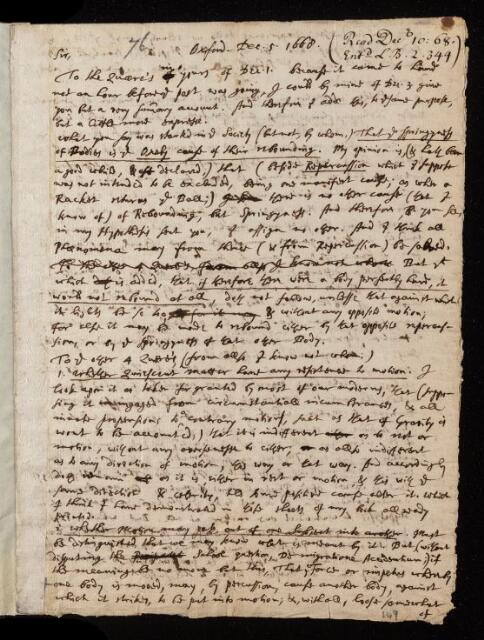 76.
Oxford. Dec. 5 1668.
(Read Dec. 10: 68.
Ent.d L.B. 2. 344)
Sir,
To the Quæres in yours of Dec. 1. Because it came to hand
not an hour before ye post was going, I could by mine of Dec. 3 give
you but a very summary account. And therefore I adde this, to ye same purpose,
but a little more express.
What you say was started in ye Society (but not by whom.) That ye Springyness
of Bodies is ye Onely cause of their rebounding. My opinion is, (& hath been
a good while, & oft declared,) that (beside Repercussion which I suppose
was not intended to be excluded, being one manifest cause; as when a
Racket returns ye Ball;) there is no other cause (that I
know of) of Rebounding, but Springyness. And therefore you see,
in my Hypothesis sent you, I assign no other. And I think all
Phænomena may from thence (& from Repercussion) be solved.
But yt
which is added, that if therefore there were a body perfectly hard, it
would not rebound at all, doth not follow, unlesse that against which
it hitteth be so too & without any opposite motion;
For else it may be made to rebound either by that opposite repercus-
sion, or by ye Springyness of that other Body.
To ye other 4 Quæres (from allso I know not whom.)
1. Whether Quiescent matter have any resistence to motion. I
look upon it as taken for granted by most of our moderns, that (suppo-
sing it from circumstantiall incumbrances, & all
innate propensions to contrary motions, such as that of Gravity is
wont to be accounted,) that it is indifferent as to rest or
motion, without any aversness to either, or allso indifferent
as to any direction of motion, this way or that way. And accordingly
as it is either in rest or motion, & this with ye
same direction & celerity, till some positive cause alter it. which
I think I have demonstrated in
2. Whether Motion may pass out of one subject into another. Must
be distinguished that we may know what is meant by it. But (without
disputing the School question, De migratione accidentium) if
the meaning be no more but this, That ye force or impetus whereby
one body is moved, may, by percussion, cause another body, against
which it strikes, to be put into motion; &, withall, loose somewhat
of
149